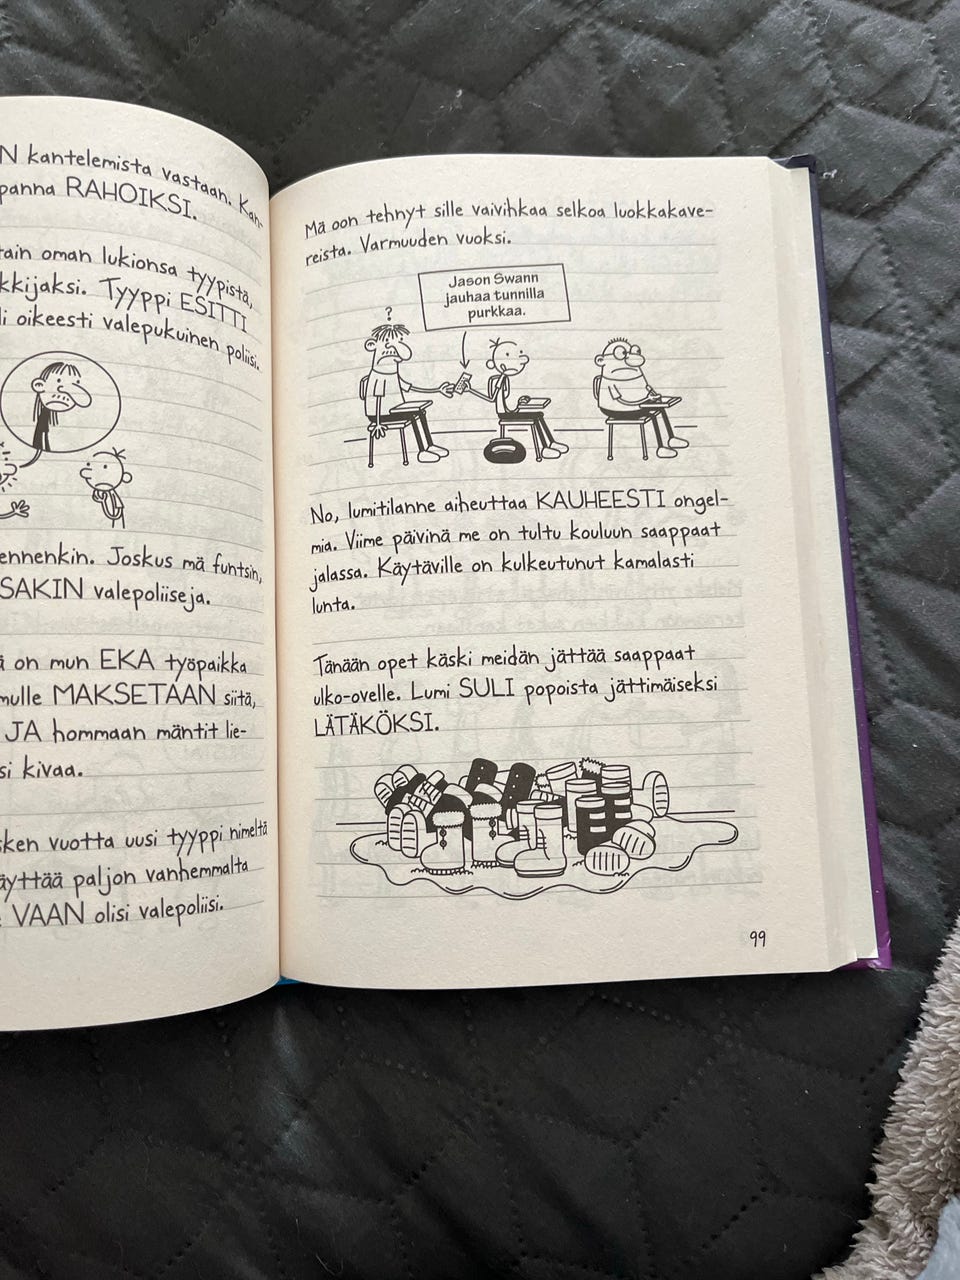 N kantelemista vastaan. Kan-
panna RAHOIKSI.
tain oman lukionsa tyypistä,
kkijaksi. Tyyppi ESITTI
li oikeesti valepukuinen poliisi.
ennenkin. Joskus mä funtsin,
SAKIN valepoliiseja.
ä on mun EKA työpaikka
mulle MAKSETAAN siitä,
JA hommaan mäntit lie-
si kivaa.
sken vuotta uusi tyyppi nimeltä
äyttää paljon vanhemmalta
VAAN olisi valepoliisi.
Mä oon tehnyt sille vaivihkaa selkoa luokkakave-
reista. Varmuuden vuoksi.
Jason Swann
jauhaa tunnilla
purkkaa.
?
No, lumitilanne aiheuttaa KAUHEESTI ongel-
mia. Viime päivinä me on tultu kouluun saappaat
jalassa. Käytäville on kulkeutunut kamalasti
lunta.
Tänään opet käski meidän jättää saappaat
ulko-ovelle. Lumi SULI popoista jättimäiseksi
LÄTÄKÖKSI.
99